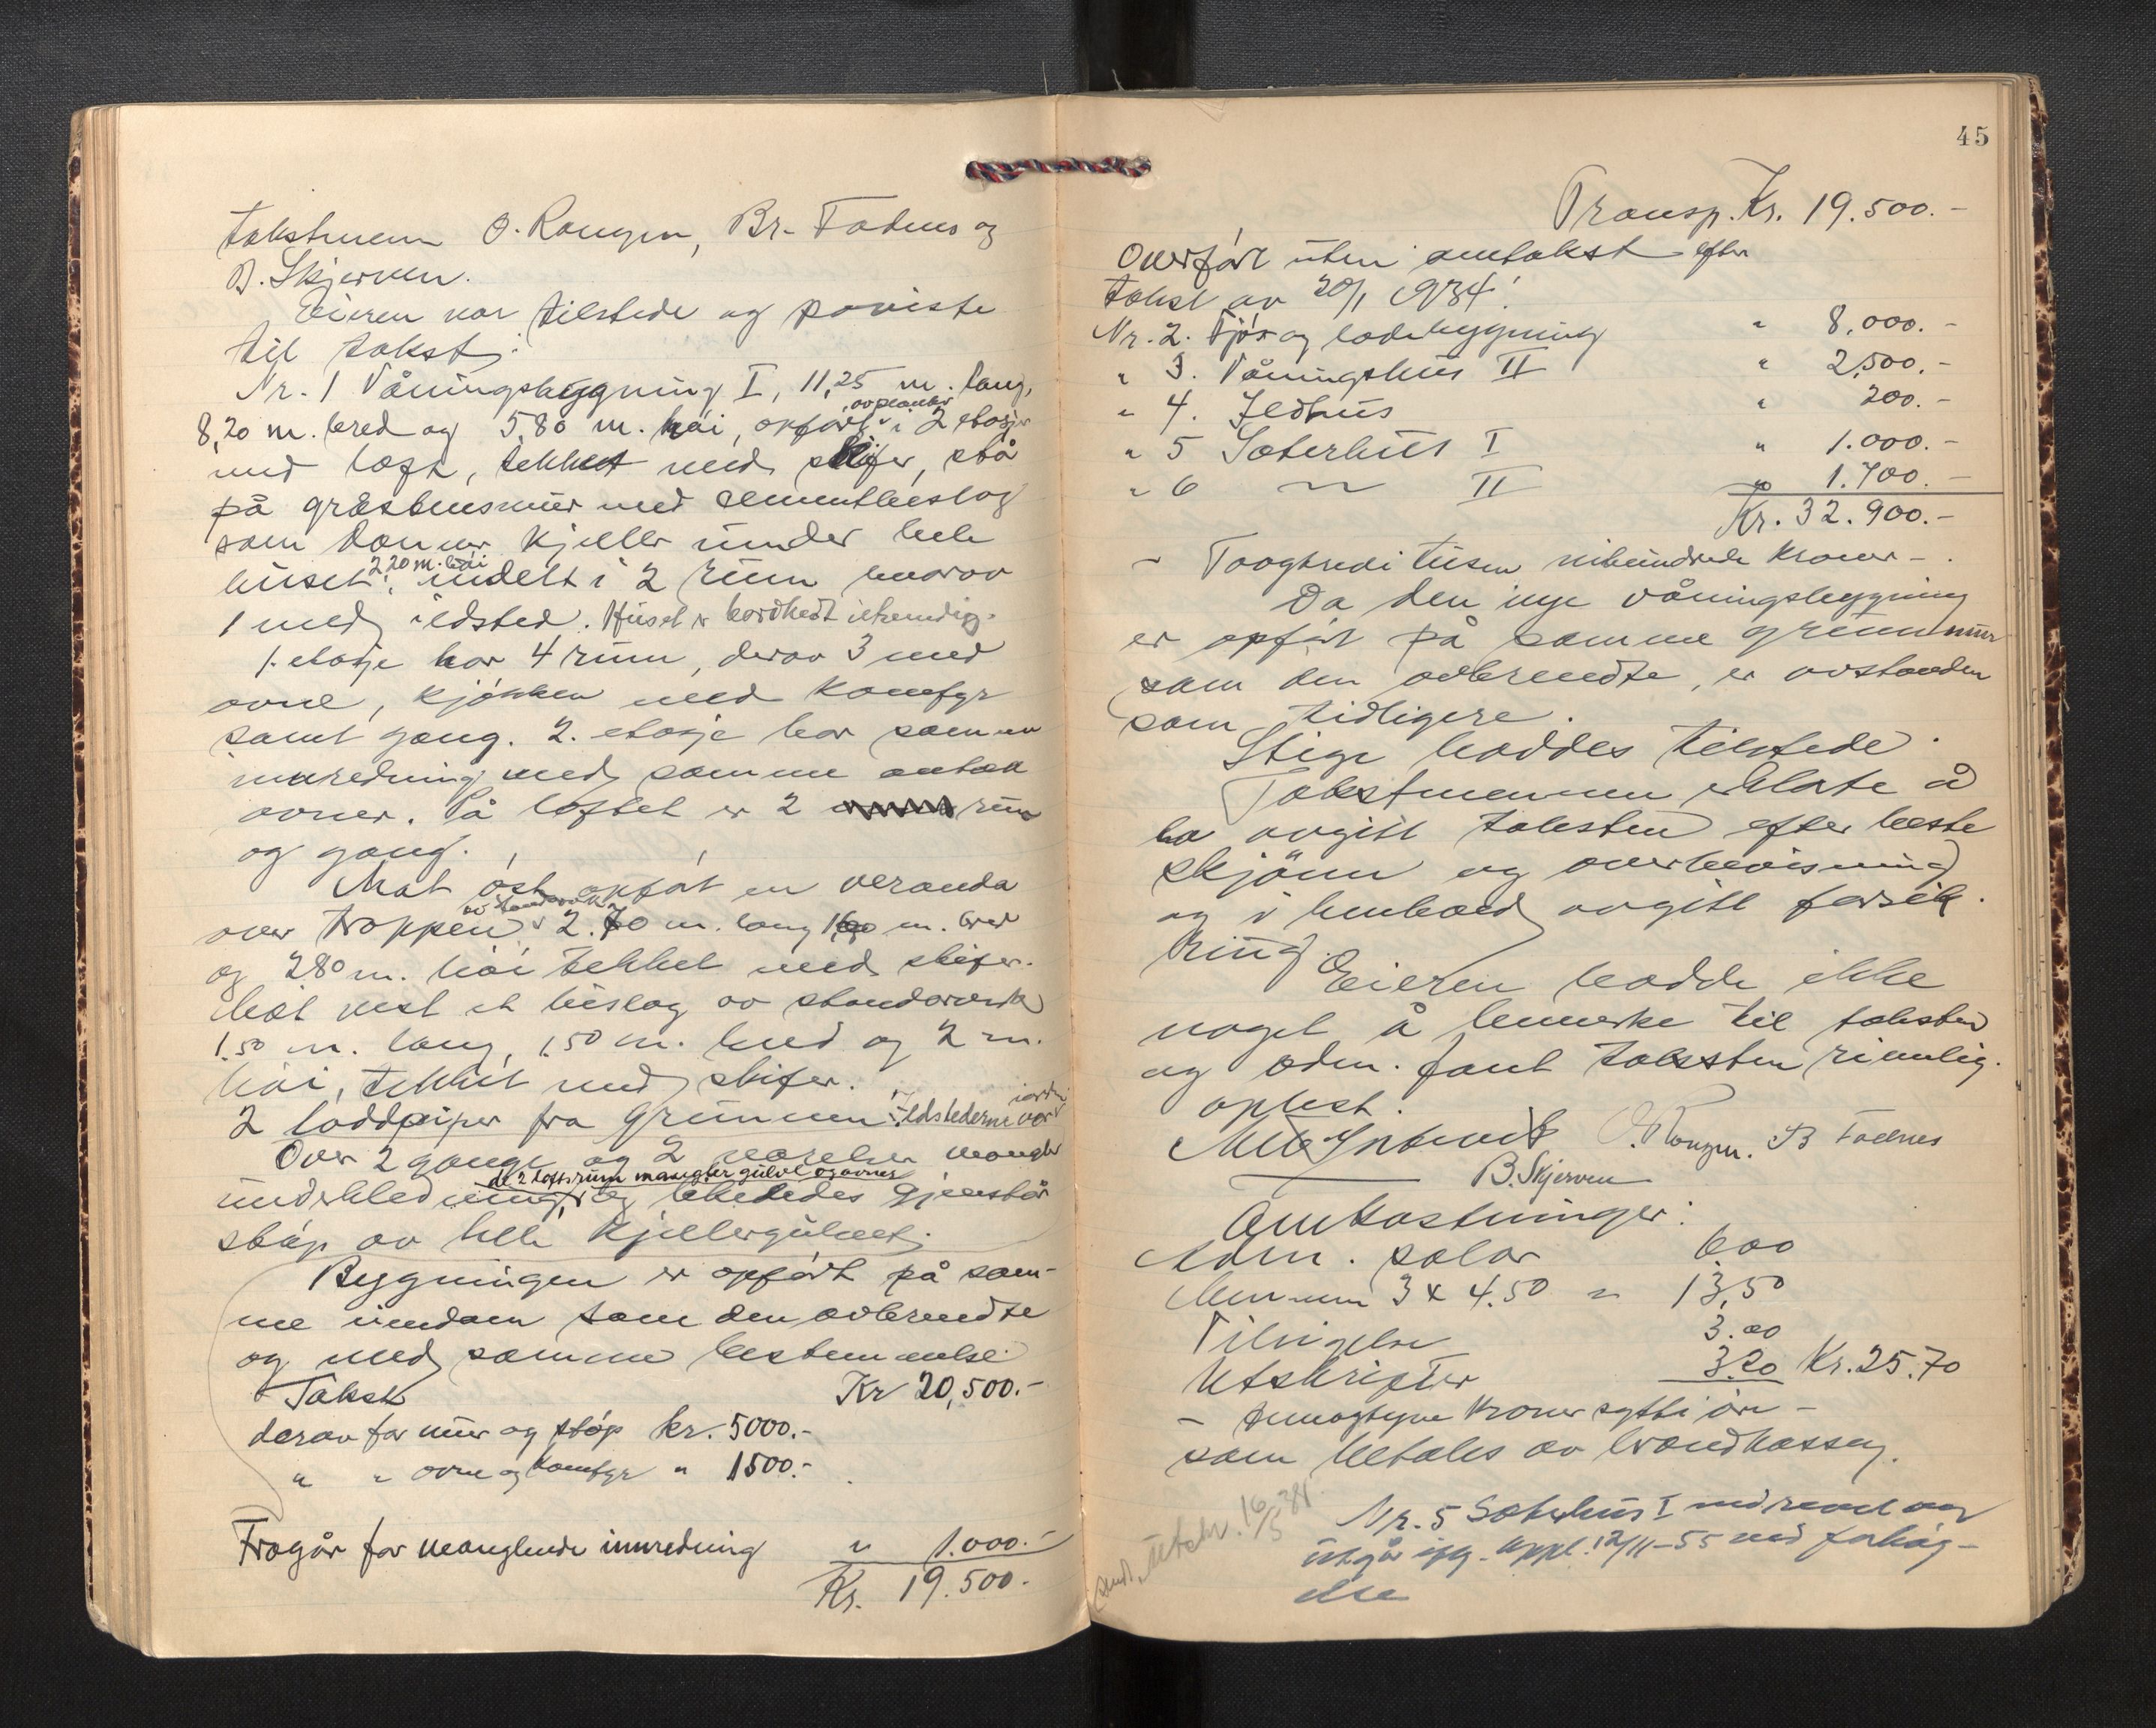 takstmenn O. Rongen, Br. Fadnes og
B. Skjerven.
Eieren var tilstede og påviste
til takst:
Nr. 1 Våningsbygning I, 11,25 m. lang,
8,20 m. bred og 5,80 m. høi, opført av planker i 2 etasjer
med loft, tekket med skifer, stå
på gråstensmur med sementbeslag
som danner kjeller under hele
huset, 2,20 m. høi inndelt i 2 rum hvorav
1 med ildsted. Huset er bordkledt utvendig.
1. etasje har 4 rum, derav 3 med
ovne, kjøkken med komfyr
samt gang. 2. etasje har samme
innredning med samme antall
ovner. På loftet er 2 rum
og gang.
Mot øst opført en veranda
over trappen av standerverk 2.70 m. lang 1,60 m. bred
og 2,80 m. høi tekket med skifer.
Mot vest et bislag av standerverk
1.50 m. lang, 1,50 m. bred og 2 m.
høi, tekket med skifer.
2 loddpiper fra grunnen. Ildstederne var i orden
Over 2 gange og 2 værelser mangler
underkledning, de 2 loftsrum mangler gulvl og ovner og likeledes gjenstår
støp av hele kjellergulvet.
Bygningen er opført på sam-
me vindam som den avbrendte
og med samme bestemmelse
Takst Kr 20,500.-
derav for mur og støp kr. 5000.-
" " ovne og komfyr " 1500.-
Fragår for manglende innredning " 1.000.-
Kr. 19.500.-
45
Transp. Kr. 19.500.-
Overført uten omtakst efter
takst av 20/1 1934:
Nr. 2. Fjøs og ladebygning " 8.000.-
" 3. Våningshus II " 2,500.-
" 4. Ildhus " 200.-
" 5 Sæterhus I " 1.000.-
" 6 " II " 1.700.-
Kr. 32.900.-
- Toogtredi tusen nihundrede kroner -.
Da den nye våningsbygning
er opført på samme grunnmur
som den avbrendte, er avstanden
som tidligere.
Stige haddes tilstede.
Takstmennene erklærte å
ha avgitt taksten efter beste
skjønn og overbevisning
og i henhold avgitt forsik-
ring.
Eieren hadde ikke
noget å bemerke til taksten
og adm. fant taksten rimelig.
oplest.
O. Rongen. B Fadnes
B. Skjerven
Omkostninger:
Adm. salær 6.00
Mennene 3 x 4.50 " 13,50
Tilsigelse 3.00
Utskrifter 3.20 Kr. 25.70
- femogtyve kroner sytti øre -
som betales av brandkassen.
Sendt. Utskr. 16/5 38.
Nr. 5 Sæterhus I nedrevet og
utgår iflg. oppl. 12/11-55 ved forhøg-
else